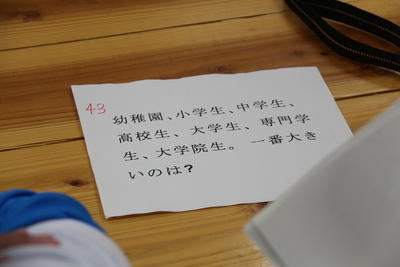 43
幼稚園、小学生、中学生、
高校生、大学生、専門学
生、大学院生。一番大き
いのは?